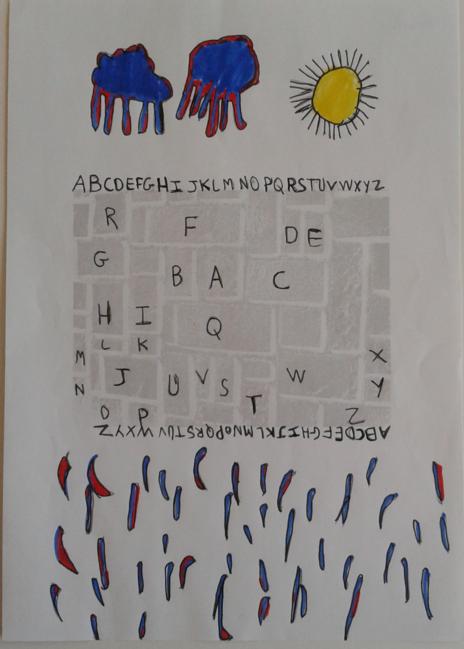 ABCDEFGHIJKLMNOPQRSTUVWXYZ
R F D E
G B A C
H I Q
L K
M X
J U V S W
N Y
T
O P Z
ABCDEFGHIJKLMNOPQRSTUVWXYZ